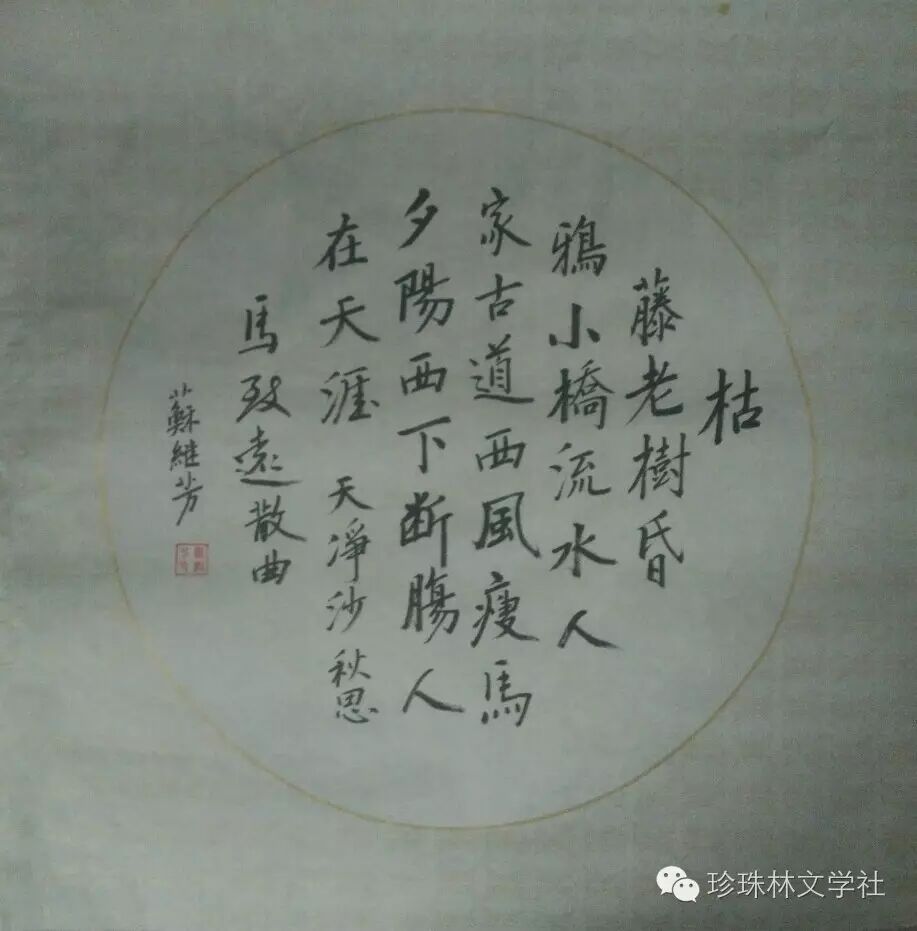 枯
藤老樹昏
鴉小橋流水人
家古道西風瘦馬
夕陽西下断腸人
在天涯 天凈沙 秋思
馬致遠散曲
蘇維芳
珍珠林文学社